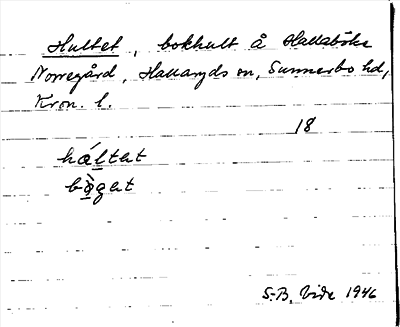 Hultet, bokhult å Hallaböke
Norregård, Hallaryds sn, Sunnerbo hd,
Kron. l.
18
háltet
bö̀get
S-B. Vide 1946